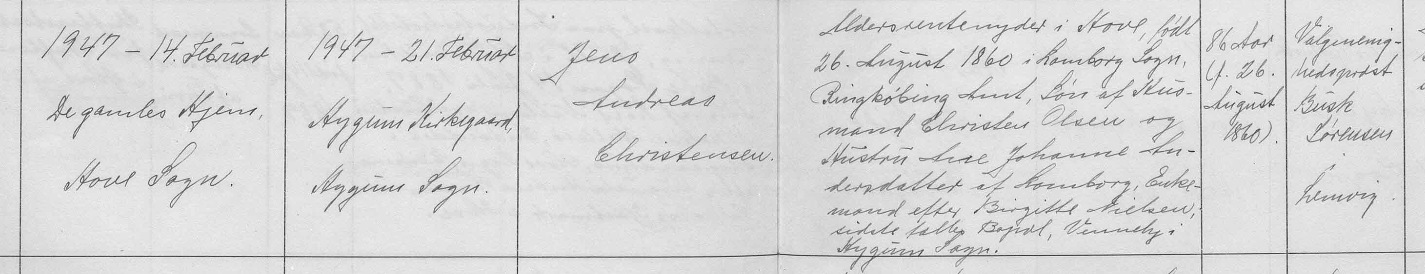 1947 – 14. Februar
De gamles Hjem,
Hove Sogn.
1947 – 21. Februar
Hygum Kirkegaard,
Hygum Sogn.
Jens
Andreas
Christensen.
Aldersrentenyder i Hove, født
26. August 1860 i Romborg Sogn,
Ringkøbing Amt, Søn af Hus-
mand Christen Olsen og
Hustru Ane Johanne An-
dersdatter af Romborg, Enke-
mand efter Birgitte Nielsen,
sidste fælles Bopæl, Venneby i
Hygum Sogn.
86 Aar
(f. 26.
August
1860).
Valgmenig-
hedspræst
Busk
Sørensen
i
Lemvig.